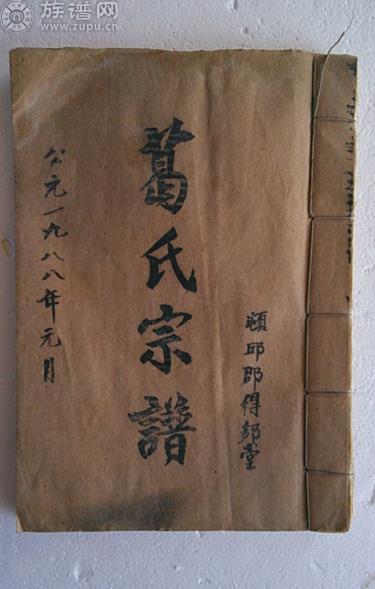 族谱网
www.zupu.cn
頓邱郡得堂
葛氏宗譜
公元一九八八年元月